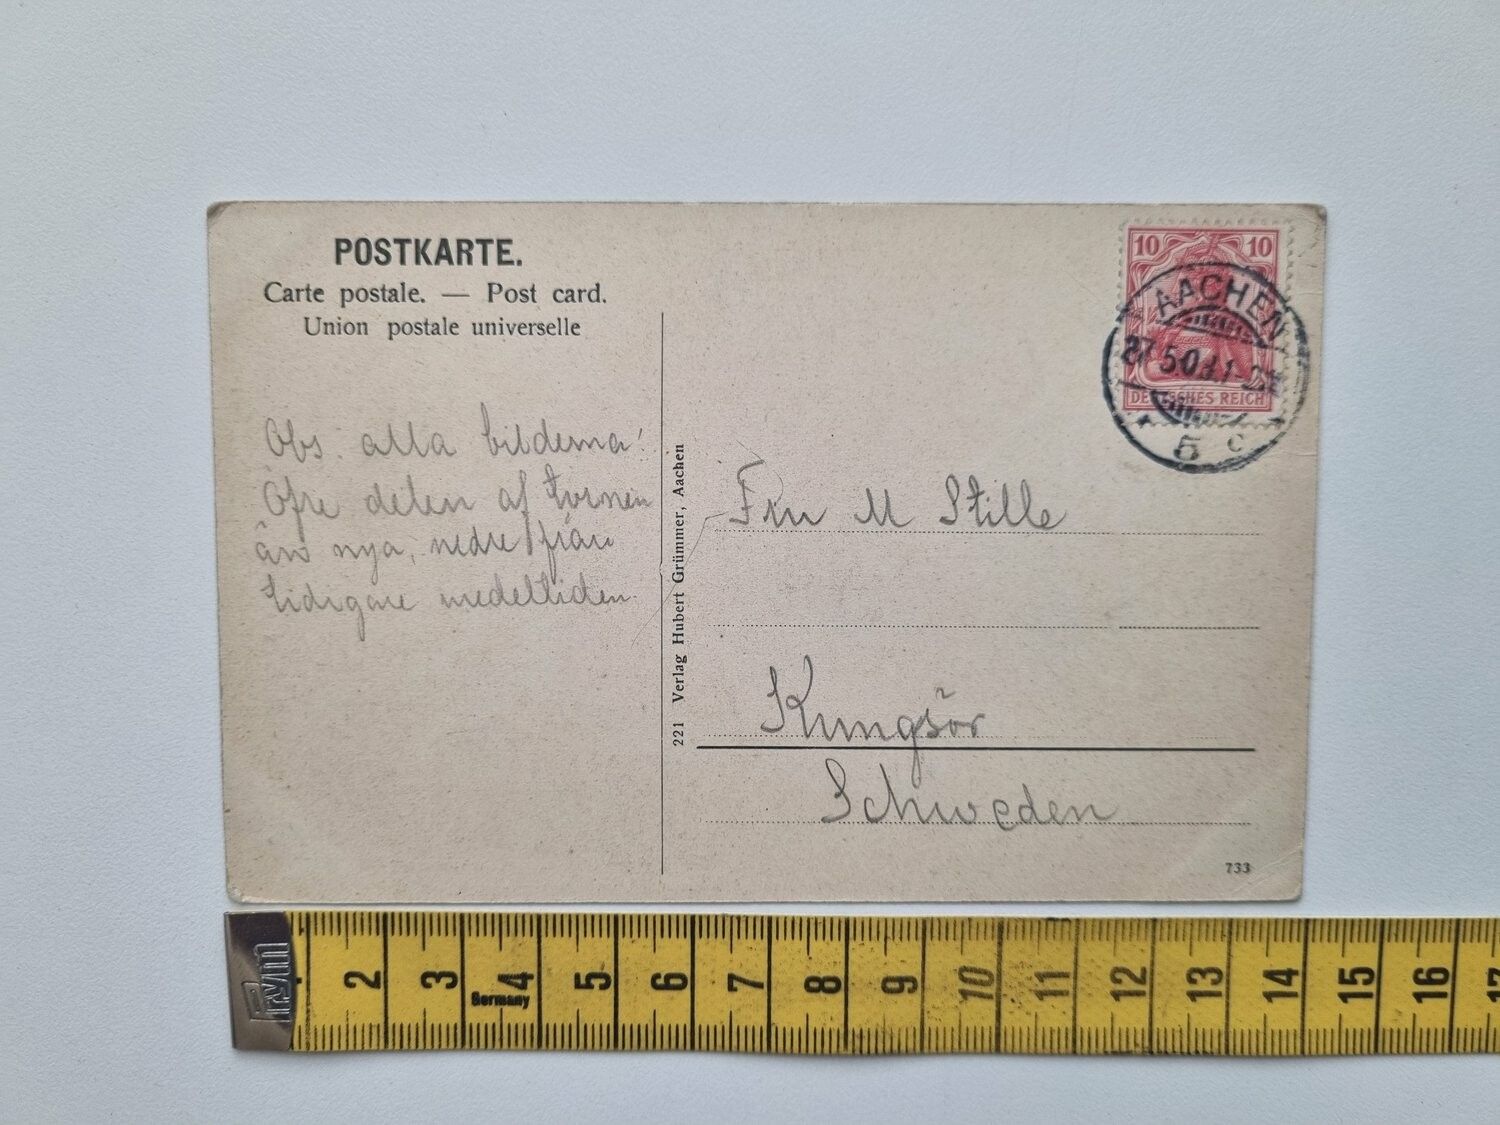 POSTKARTE.
Carte postale. — Post card.
Union postale universelle
Obs. alla bilderna!
Öfre delen af tornen
äro nya, nedre från
tidigare medeltiden.
221 Verlag Hubert Grümmer, Aachen
10 10
DEUTSCHES REICH
AACHEN
5 c
Fru M Stille
Kungsör
Schweden
733
Prym
2 3 4 5 6 7 8 9 10 11 12 13 14 15 16 17
Germany